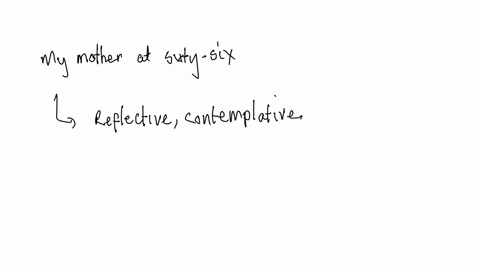 My mother at sixty-six
↳ Reflective, contemplative.